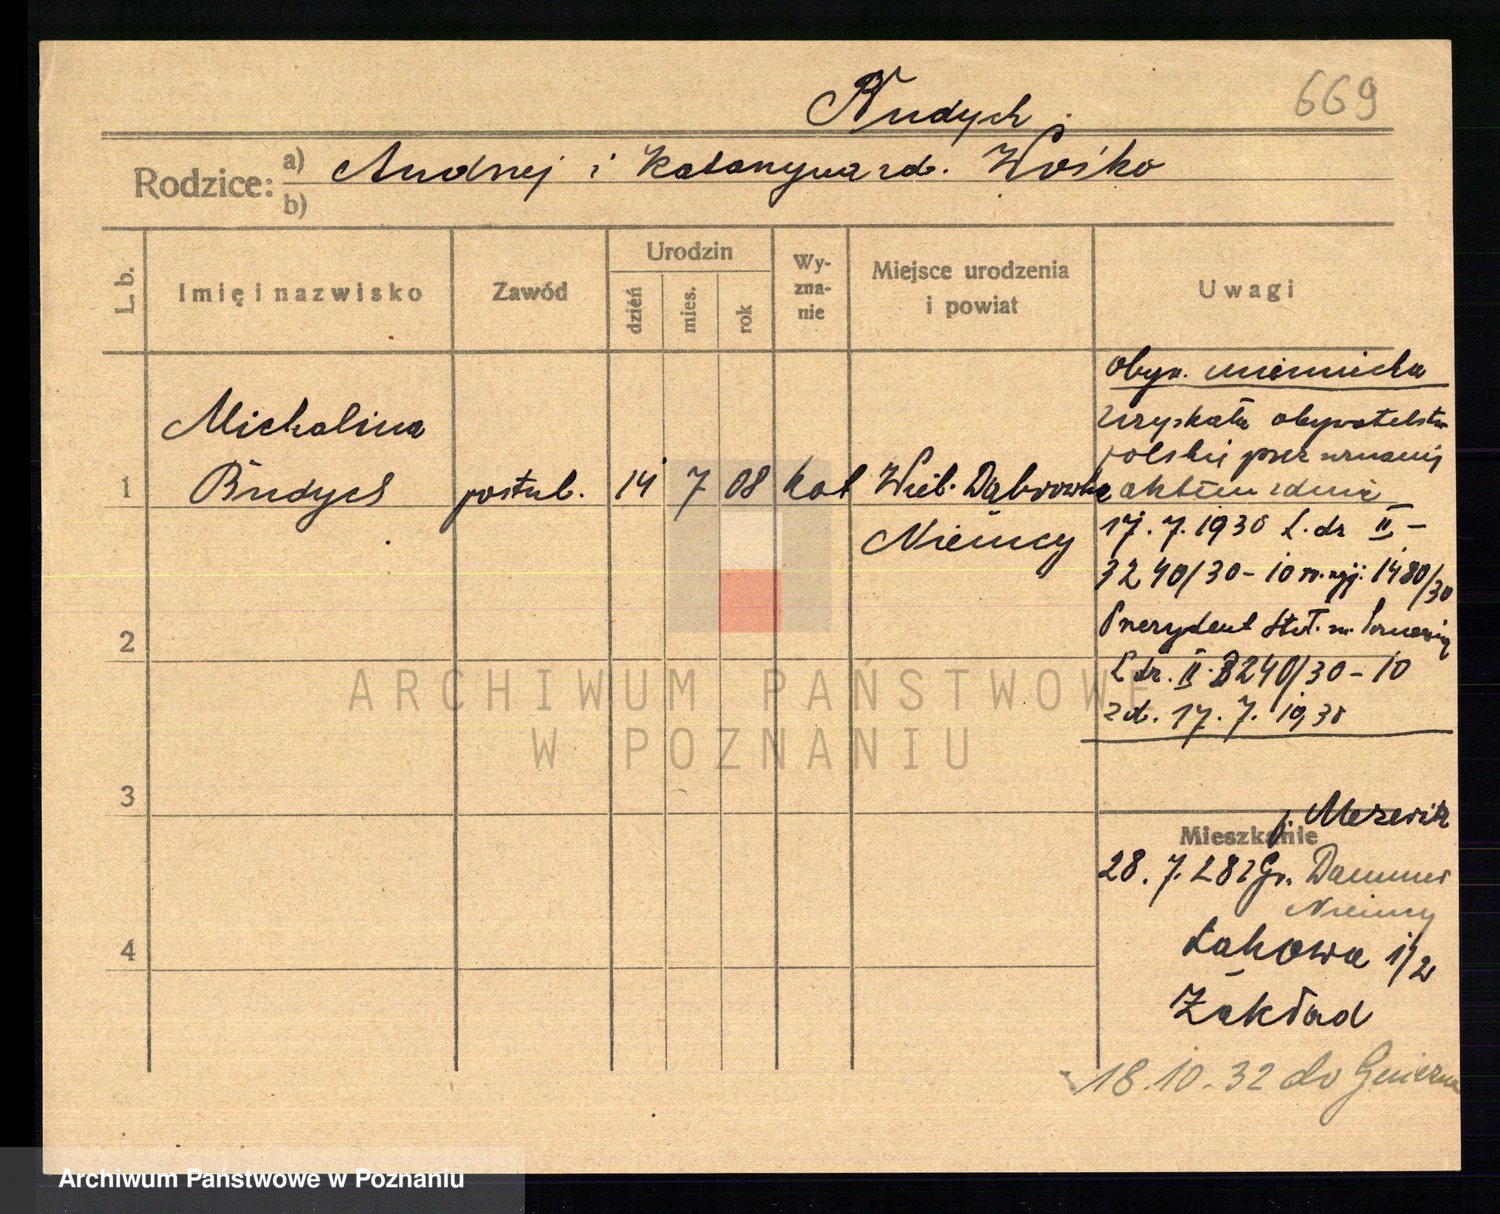 Budych.
669
Rodzice: a) Andrzej i Katarzyna zd. Wośko
b)
L. b.
Imię i nazwisko
Zawód
Urodzin
dzień
mies.
rok
Wy-
zna-
nie
Miejsce urodzenia
i powiat
Uwagi
1
Michalina
Budych
postul.
14 7 08 kat
Wielk. Dąbrówka
Niemcy
obyw. niemiecka
uzyskała obywatelstwo
polskie przez
aktem z dnia
17.7.1930 L. dz II -
3240/30 - 10 1480/30
Prezydent Stoł. m. Poznania
L dz. II. 3240/30 - 10
zd. 17.7.1930
2
3
4
Mieszkanie
p. Mezeritz
28.7.28 z Gr. Dammer
Niemcy
Łąkowa 1/2
Zakład
18.10.32 do Gniezna
ARCHIWUM PAŃSTWOWE
W POZNANIU
Archiwum Państwowe w Poznaniu